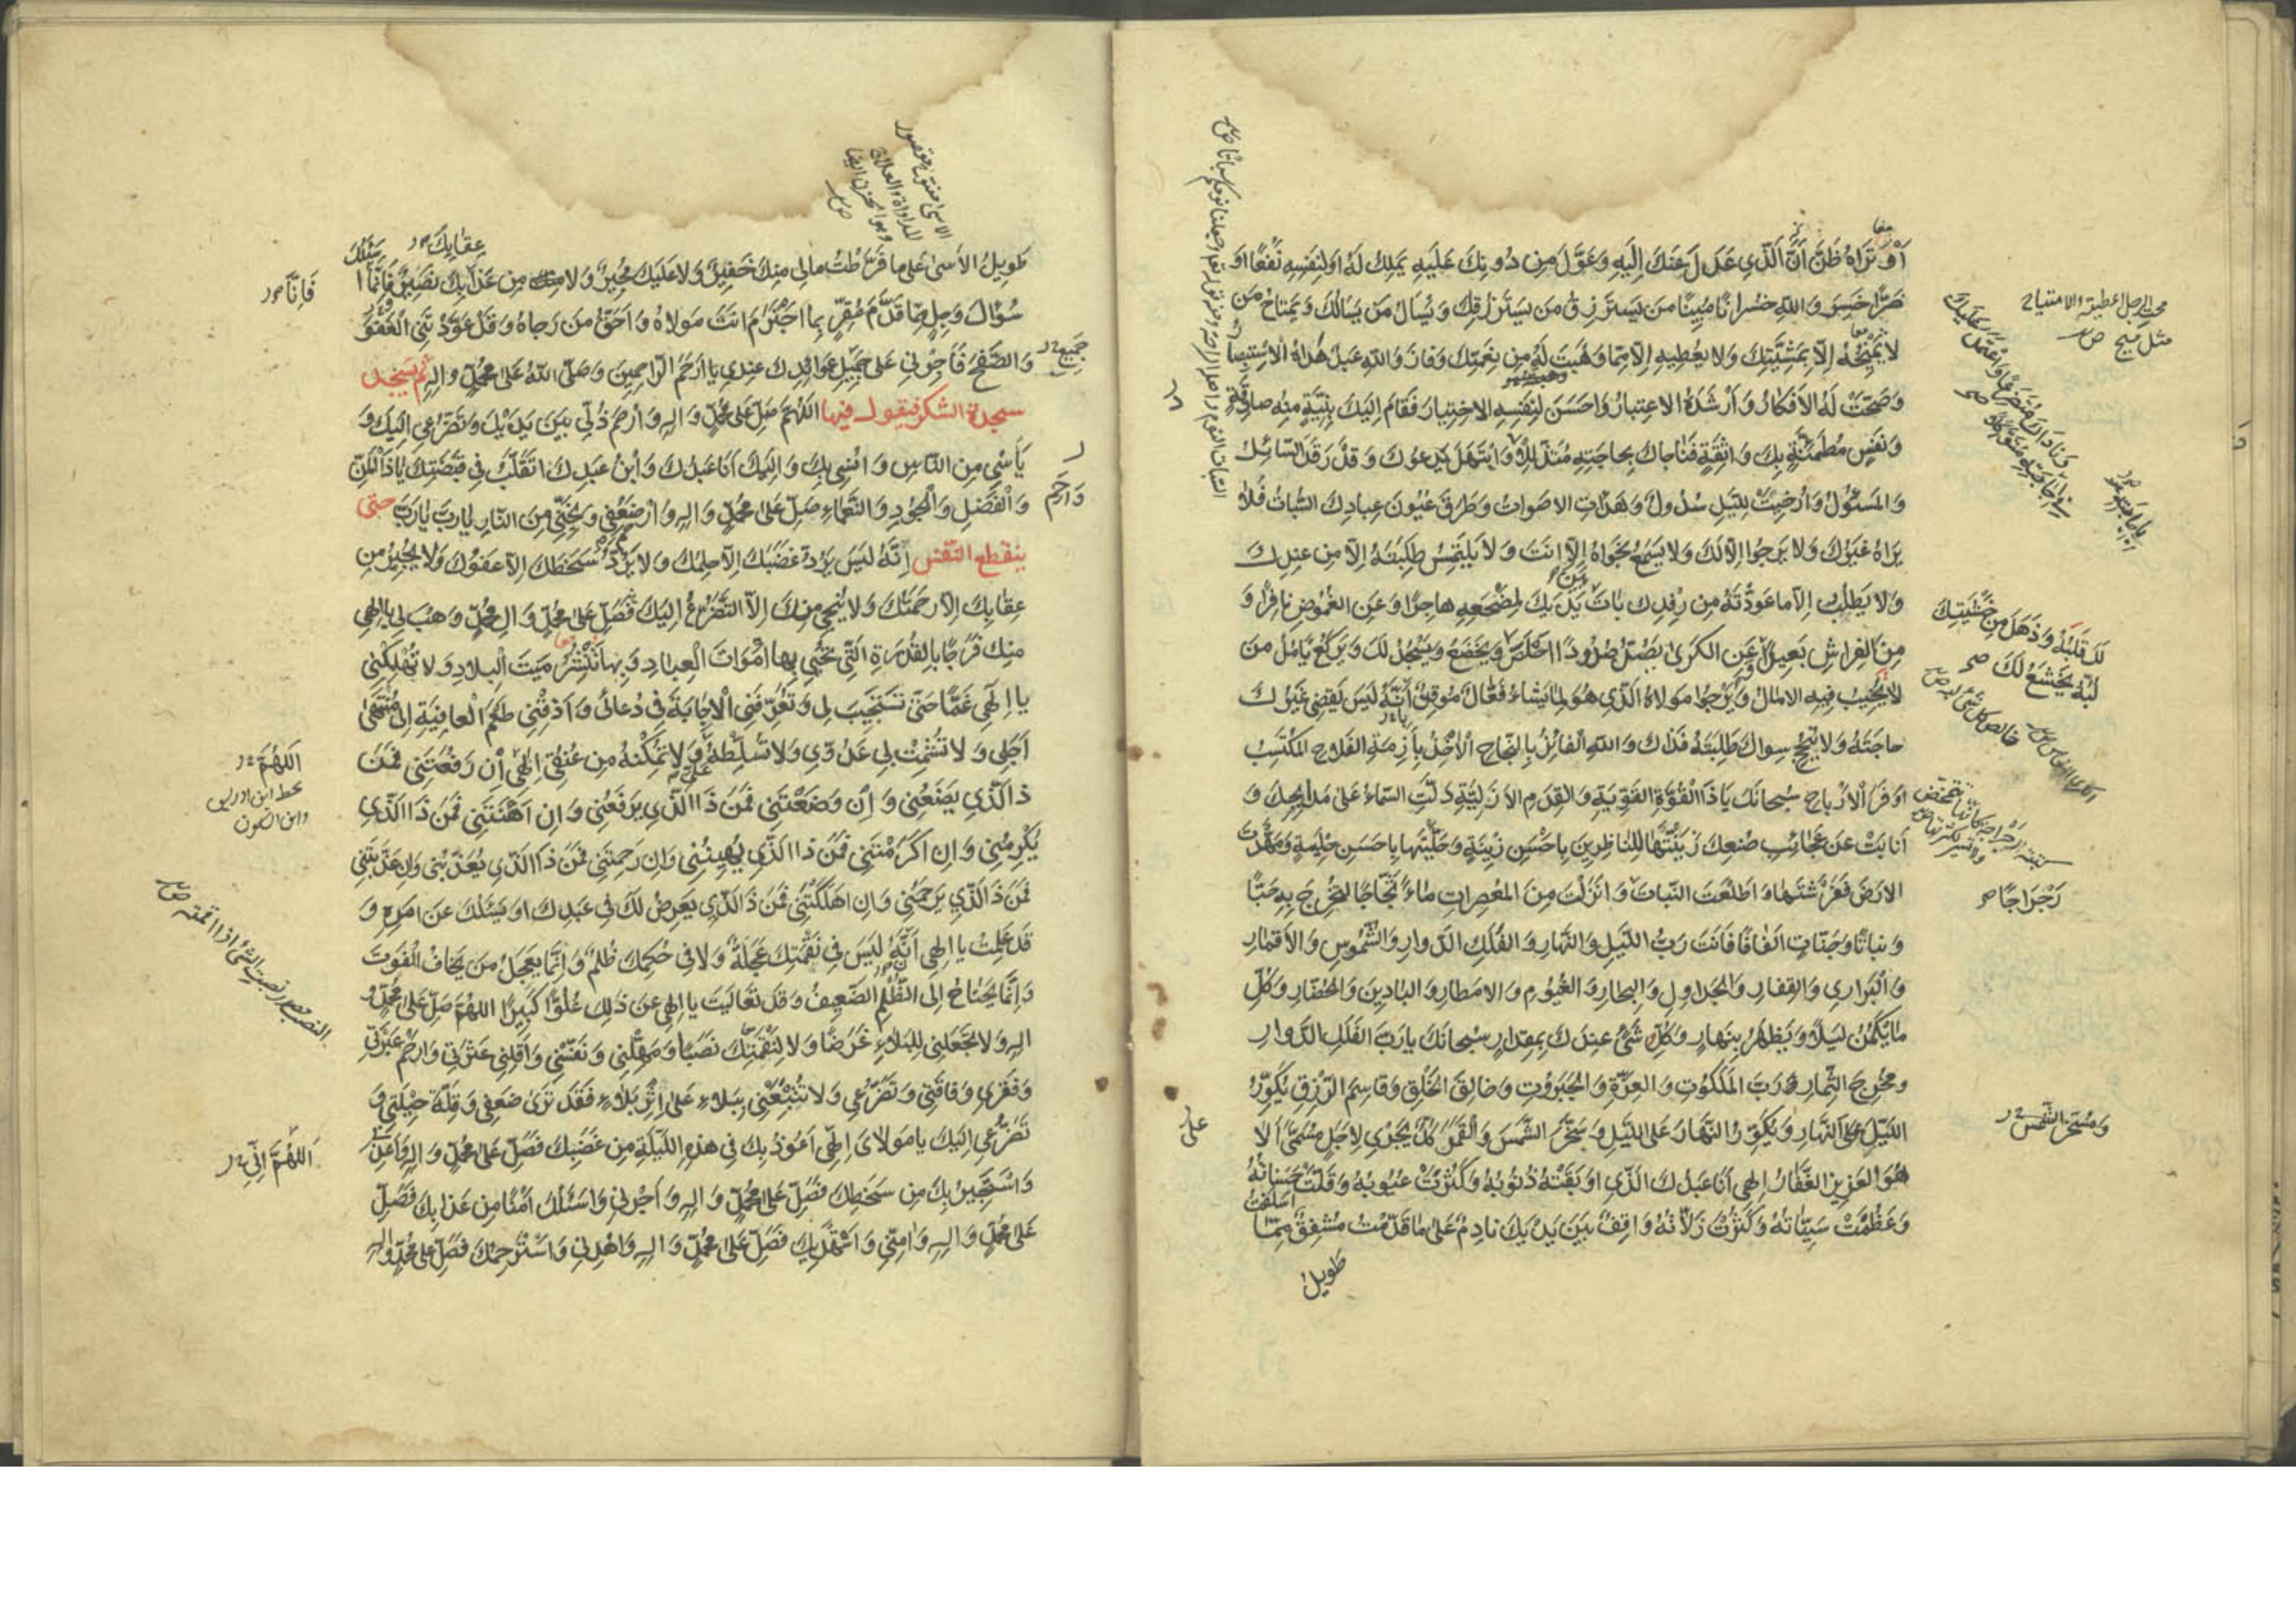 أَوْ تَرَاهُ ظَنَّ أَنَّ الَّذِي عَدَلَ عَنْكَ إِلَيْهِ وَعَوَّلَ مِنْ دُونِكَ عَلَيْهِ يَمْلِكُ لَهُ أَوْ لِنَفْسِهِ نَفْعًا أَوْ
ضَرًّا خَسِرَ وَاللهِ خُسْرَانًا مُبِينًا مَنْ يَسْتَرْزِقُ مَنْ يَسْتَرْزِقُكَ وَيَسْأَلُ مَنْ يَسْأَلُكَ وَيَمْتَاحُ مَنْ
لَا يَمْنَحُهُ إِلَّا بِمَشِيَّتِكَ وَلَا يُعْطِيهِ إِلَّا مِمَّا وَهَبْتَ لَهُ مِنْ نِعْمَتِكَ وَفَازَ وَاللهِ عَبْدٌ هَدَاهُ الِاسْتِبْصَارُ
وَصَحَّتْ لَهُ الْأَفْكَارُ وَأَرْشَدَهُ الِاعْتِبَارُ وَأَحْسَنَ لِنَفْسِهِ الِاخْتِيَارَ فَقَامَ إِلَيْكَ بِنِيَّةٍ مِنْهُ صَادِقَةٍ
وَنَفْسٍ مُطْمَئِنَّةٍ بِكَ وَاثِقَةٍ فَنَاجَاكَ بِحَاجَتِهِ مُتَذَلِّلًا وَابْتَهَلَ يَدْعُوكَ وَقَدْ رَقَدَ السَّائِلُ
وَالْمَسْئُولُ وَأُرْخِيَتْ لِلَّيْلِ سُدُولٌ وَهَدَأَتِ الْأَصْوَاتُ وَطَرَقَ عُيُونَ عِبَادِكَ السُّبَاتُ فَلَا
يَرَاهُ غَيْرُكَ وَلَا يَرْجُو إِلَّا لَكَ وَلَا يَسْمَعُ نَجْوَاهُ إِلَّا أَنْتَ وَلَا يَلْتَمِسُ طَلِبَتَهُ إِلَّا مِنْ عِنْدِكَ
وَلَا يَطْلُبُ إِلَّا مَا عَوَّدْتَهُ مِنْ رِفْدِكَ بَاتَ بَيْنَ يَدَيْكَ لِمَضْجَعِهِ هَاجِرًا وَعَنِ الْغُمُوضِ نَافِرًا وَ
مِنَ الْفِرَاشِ بَعِيدًا وَعَنِ الْكَرَى يَصُدُّ صُدُودًا أَخْلَصَ وَيَخْضَعُ وَيَسْجُدُ لَكَ وَيَرْكَعُ يَأْمُلُ مَنْ
لَا يَخِيبُ فِيهِ الْآمَالُ وَيَرْجُو مَوْلَاهُ الَّذِي هُوَ لِمَا يَشَاءُ فَعَّالٌ مُوقِنٌ أَنَّهُ لَيْسَ يَقْضِي غَيْرُكَ
حَاجَتَهُ وَلَا يُنْجِحُ سِوَاكَ طَلِبَتَهُ فَذَاكَ وَاللهِ الْفَائِزُ بِالنَّجَاحِ الْآخِذُ بِأَزِمَّةِ الْفَلَاحِ الْمُكْتَسِبُ
أَوْفَرَ الْأَرْبَاحِ سُبْحَانَكَ يَا ذَا الْقُوَّةِ الْقَوِيَّةِ وَالْقِدَمِ الْأَزَلِيَّةِ دَلَّتِ السَّمَاءُ عَلَى مَدَائِحِكَ وَ
أَبَانَتْ عَنْ عَجَائِبِ صُنْعِكَ زَيَّنْتَهَا لِلنَّاظِرِينَ بِأَحْسَنِ زِينَةٍ وَحَلَّيْتَهَا بِأَحْسَنِ حِلْيَةٍ وَمَهَّدْتَ
الْأَرْضَ فَفَرَشْتَهَا وَأَطْلَعْتَ النَّبَاتَ وَأَنْزَلْتَ مِنَ الْمُعْصِرَاتِ مَاءً ثَجَّاجًا لِتُخْرِجَ بِهِ حَبًّا
وَنَبَاتًا وَجَنَّاتٍ أَلْفَافًا فَأَنْتَ رَبُّ اللَّيْلِ وَالنَّهَارِ وَالْفُلْكِ الدَّوَّارِ وَالشُّمُوسِ وَالْأَقْمَارِ
وَالْبَرَارِي وَالْقِفَارِ وَالْجَدَاوِلِ وَالْبِحَارِ وَالْغُيُومِ وَالْأَمْطَارِ وَالْبَادِينَ وَالْحُضَّارِ وَكُلِّ
مَا يَكْمُنُ لَيْلًا وَيَظْهَرُ بِنَهَارٍ وَكُلُّ شَيْءٍ عِنْدَكَ بِمِقْدَارٍ سُبْحَانَكَ يَا رَبَّ الْفَلَكِ الدَّوَّارِ
وَمُخْرِجَ الثِّمَارِ رَبَّ الْمَلَكُوتِ وَالْعِزَّةِ وَالْجَبَرُوتِ وَخَالِقَ الْخَلْقِ وَقَاسِمَ الرِّزْقِ يُكَوِّرُ
اللَّيْلَ عَلَى النَّهَارِ وَيُكَوِّرُ النَّهَارَ عَلَى اللَّيْلِ وَسَخَّرَ الشَّمْسَ وَالْقَمَرَ كُلٌّ يَجْرِي لِأَجَلٍ مُسَمًّى أَلَا
هُوَ الْعَزِيزُ الْغَفَّارُ إِلَهِي أَنَا عَبْدُكَ الَّذِي أَوْبَقَتْهُ ذُنُوبُهُ وَكَثُرَتْ عُيُوبُهُ وَقَلَّتْ حَسَنَاتُهُ
وَعَظُمَتْ سَيِّئَاتُهُ وَكَثُرَتْ زَلَّاتُهُ وَاقِفٌ بَيْنَ يَدَيْكَ نَادِمٌ عَلَى مَا قَدَّمْتُ مُشْفِقٌ مِمَّا
أَسْلَفْتُ
طَوِيلُ
مثل منيح
لَكَ قَلْبُهُ وَذَهَلَ مِنْ خَشْيَتِكَ
لُبُّهُ يَخْشَعُ لَكَ
رَجْرَاجًا
وَمُسَخِّرَ الشَّمْسِ
على
طَوِيلُ الْأَسَى عَلَى مَا فَرَّطْتُ مَا لِي مِنْكَ خَفِيرٌ وَلَا عَلَيْكَ مُجِيرٌ وَلَا مِنْ عَذَابِكَ نَصِيرٌ فَإِنَّمَا
عِقَابِكَ
سُؤَالَ وَجِلٍ مِمَّا قَدَّمَ مُقِرٍّ بِمَا اجْتَرَمَ أَنْتَ مَوْلَاهُ وَأَحَقُّ مَنْ رَجَاهُ وَقَدْ عَوَّدْتَنِي الْعَفْوَ
وَالصَّفْحَ فَأَجِرْنِي عَلَى جَمِيلِ عَوَائِدِكَ عِنْدِي يَا أَرْحَمَ الرَّاحِمِينَ وَصَلَّى اللهُ عَلَى مُحَمَّدٍ وَآلِهِ ثم يسجد
سجدة الشكر فيقول فيها اللهُمَّ صَلِّ عَلَى مُحَمَّدٍ وَآلِهِ وَارْحَمْ ذُلِّي بَيْنَ يَدَيْكَ وَتَضَرُّعِي إِلَيْكَ وَ
يَأْسِي مِنَ النَّاسِ وَأُنْسِي بِكَ وَإِلَيْكَ أَنَا عَبْدُكَ وَابْنُ عَبْدِكَ أَتَقَلَّبُ فِي قَبْضَتِكَ يَا ذَا الْمَنِّ
وَالْفَضْلِ وَالْجُودِ وَالنَّعْمَاءِ صَلِّ عَلَى مُحَمَّدٍ وَآلِهِ وَارْحَمْ ضَعْفِي وَنَجِّنِي مِنَ النَّارِ يَا رَبِّ يَا رَبِّ حتى
ينقطع النفس إِنَّهُ لَيْسَ يَرُدُّ غَضَبَكَ إِلَّا حِلْمُكَ وَلَا يَرُدُّ سَخَطَكَ إِلَّا عَفْوُكَ وَلَا يُجِيرُ مِنْ
عِقَابِكَ إِلَّا رَحْمَتُكَ وَلَا يُنْجِي مِنْكَ إِلَّا التَّضَرُّعُ إِلَيْكَ فَصَلِّ عَلَى مُحَمَّدٍ وَآلِ مُحَمَّدٍ وَهَبْ لِي يَا إِلَهِي
مِنْكَ فَرَجًا بِالْقُدْرَةِ الَّتِي تُحْيِي بِهَا أَمْوَاتَ الْعِبَادِ وَبِهَا تَنْشُرُ مَيْتَ الْبِلَادِ وَلَا تُهْلِكْنِي
يَا إِلَهِي غَمًّا حَتَّى تَسْتَجِيبَ لِي وَتُعَرِّفَنِي الْإِجَابَةَ فِي دُعَائِي وَأَذِقْنِي طَعْمَ الْعَافِيَةِ إِلَى مُنْتَهَى
أَجَلِي وَلَا تُشْمِتْ بِي عَدُوِّي وَلَا تُسَلِّطْهُ عَلَيَّ وَلَا تُمَكِّنْهُ مِنْ عُنُقِي إِلَهِي إِنْ رَفَعْتَنِي فَمَنْ
ذَا الَّذِي يَضَعُنِي وَإِنْ وَضَعْتَنِي فَمَنْ ذَا الَّذِي يَرْفَعُنِي وَإِنْ أَهَنْتَنِي فَمَنْ ذَا الَّذِي
يُكْرِمُنِي وَإِنْ أَكْرَمْتَنِي فَمَنْ ذَا الَّذِي يُهِينُنِي وَإِنْ رَحِمْتَنِي فَمَنْ ذَا الَّذِي يُعَذِّبُنِي وَإِنْ عَذَّبْتَنِي
فَمَنْ ذَا الَّذِي يَرْحَمُنِي وَإِنْ أَهْلَكْتَنِي فَمَنْ ذَا الَّذِي يَعْرِضُ لَكَ فِي عَبْدِكَ أَوْ يَسْئَلُكَ عَنْ أَمْرِهِ وَ
قَدْ عَلِمْتُ يَا إِلَهِي أَنَّهُ لَيْسَ فِي نَقِمَتِكَ عَجَلَةٌ وَلَا فِي حُكْمِكَ ظُلْمٌ وَإِنَّمَا يَعْجَلُ مَنْ يَخَافُ الْفَوْتَ
وَإِنَّمَا يَحْتَاجُ إِلَى الظُّلْمِ الضَّعِيفُ وَقَدْ تَعَالَيْتَ يَا إِلَهِي عَنْ ذَلِكَ عُلُوًّا كَبِيرًا اللهُمَّ صَلِّ عَلَى مُحَمَّدٍ وَ
آلِهِ وَلَا تَجْعَلْنِي لِلْبَلَاءِ غَرَضًا وَلَا لِنَقِمَتِكَ نَصَبًا وَمَهِّلْنِي وَنَفِّسْنِي وَأَقِلْنِي عَثْرَتِي وَارْحَمْ عَبْرَتِي
وَفَقْرِي وَفَاقَتِي وَتَضَرُّعِي وَلَا تُتْبِعْنِي بِبَلَاءٍ عَلَى إِثْرِ بَلَاءٍ فَقَدْ تَرَى ضَعْفِي وَقِلَّةَ حِيلَتِي وَ
تَضَرُّعِي إِلَيْكَ يَا مَوْلَايَ إِلَهِي أَعُوذُ بِكَ فِي هَذِهِ اللَّيْلَةِ مِنْ غَضَبِكَ فَصَلِّ عَلَى مُحَمَّدٍ وَآلِهِ وَأَعِذْنِي
وَأَسْتَجِيرُ بِكَ مِنْ سَخَطِكَ فَصَلِّ عَلَى مُحَمَّدٍ وَآلِهِ وَأَجِرْنِي وَأَسْئَلُكَ أَمْنًا مِنْ عَذَابِكَ فَصَلِّ
عَلَى مُحَمَّدٍ وَآلِهِ وَآمِنِّي وَأَسْتَهْدِيكَ فَصَلِّ عَلَى مُحَمَّدٍ وَآلِهِ وَاهْدِنِي وَأَسْتَرْحِمُكَ فَصَلِّ عَلَى مُحَمَّدٍ وَآلِهِ
جَمِيعِ
وَارْحَمْ
فَإِنَّا
اللهُمَّ
بخط ابن ادريس
وابن السكون
اللهُمَّ إِنِّي